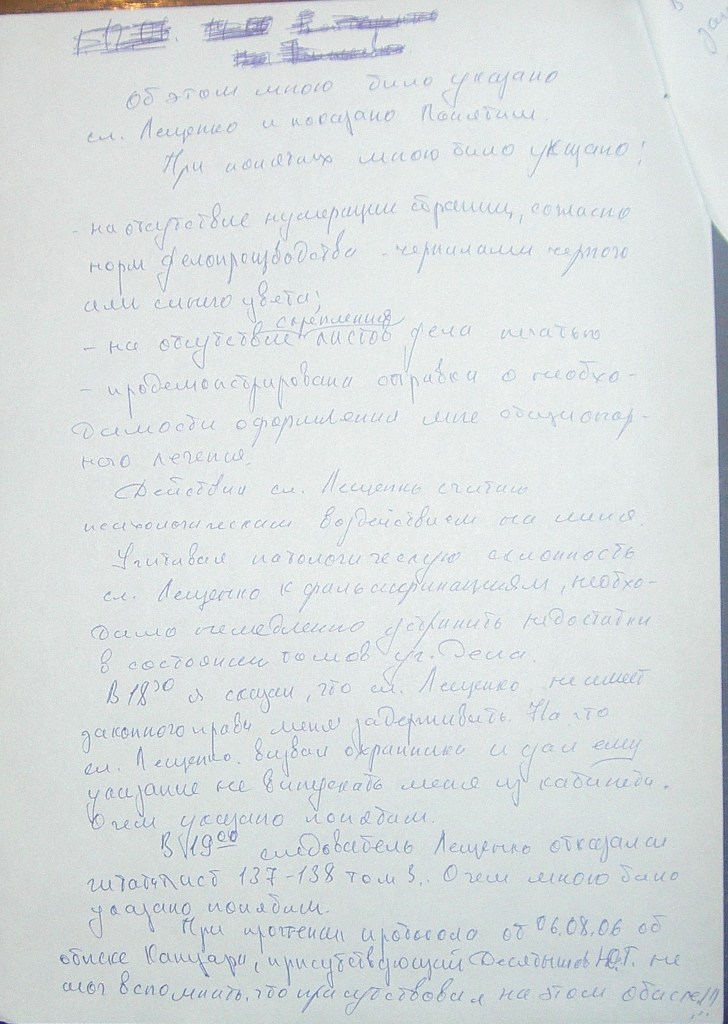 Об этом мною было указано
сл. Лещенко и показано Понятым.
При понятых мною было указано:
- на отсутствие нумерации страниц, согласно
норм делопроизводства - чернилами черного
или синего цвета;
скрепления
- на отсутствие листов дела печатью
- продемонстрирована справка о необхо-
димости оформления мне стационар-
ного лечения.
Действия сл. Лещенко считаю
психологическим воздействием на меня.
Учитывая патологическую склонность
сл. Лещенко к фальсификациям, необхо-
димо немедленно устранить недостатки
в состоянии томов уг. Дела.
В 18 30 я сказал, что сл. Лещенко не имеет
законного права меня задерживать. На что
сл. Лещенко вызвал охранника и дал ему
указание не выпускать меня из кабинета.
О чем указано понятым.
В 19 00 следователь Лещенко отказался
читать лист 137-138 том 3. О чем мною было
указано понятым.
При прочтении протокола от 06.08.06 об
обыске присутствующий Ю.Г. не
мог вспомнить, что присутствовал на этом обыске!!!